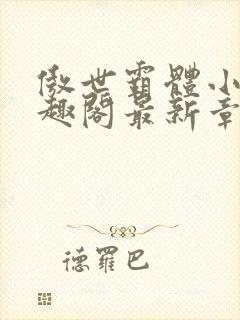 傲世霸體小
趣閣最新章
德羅巴